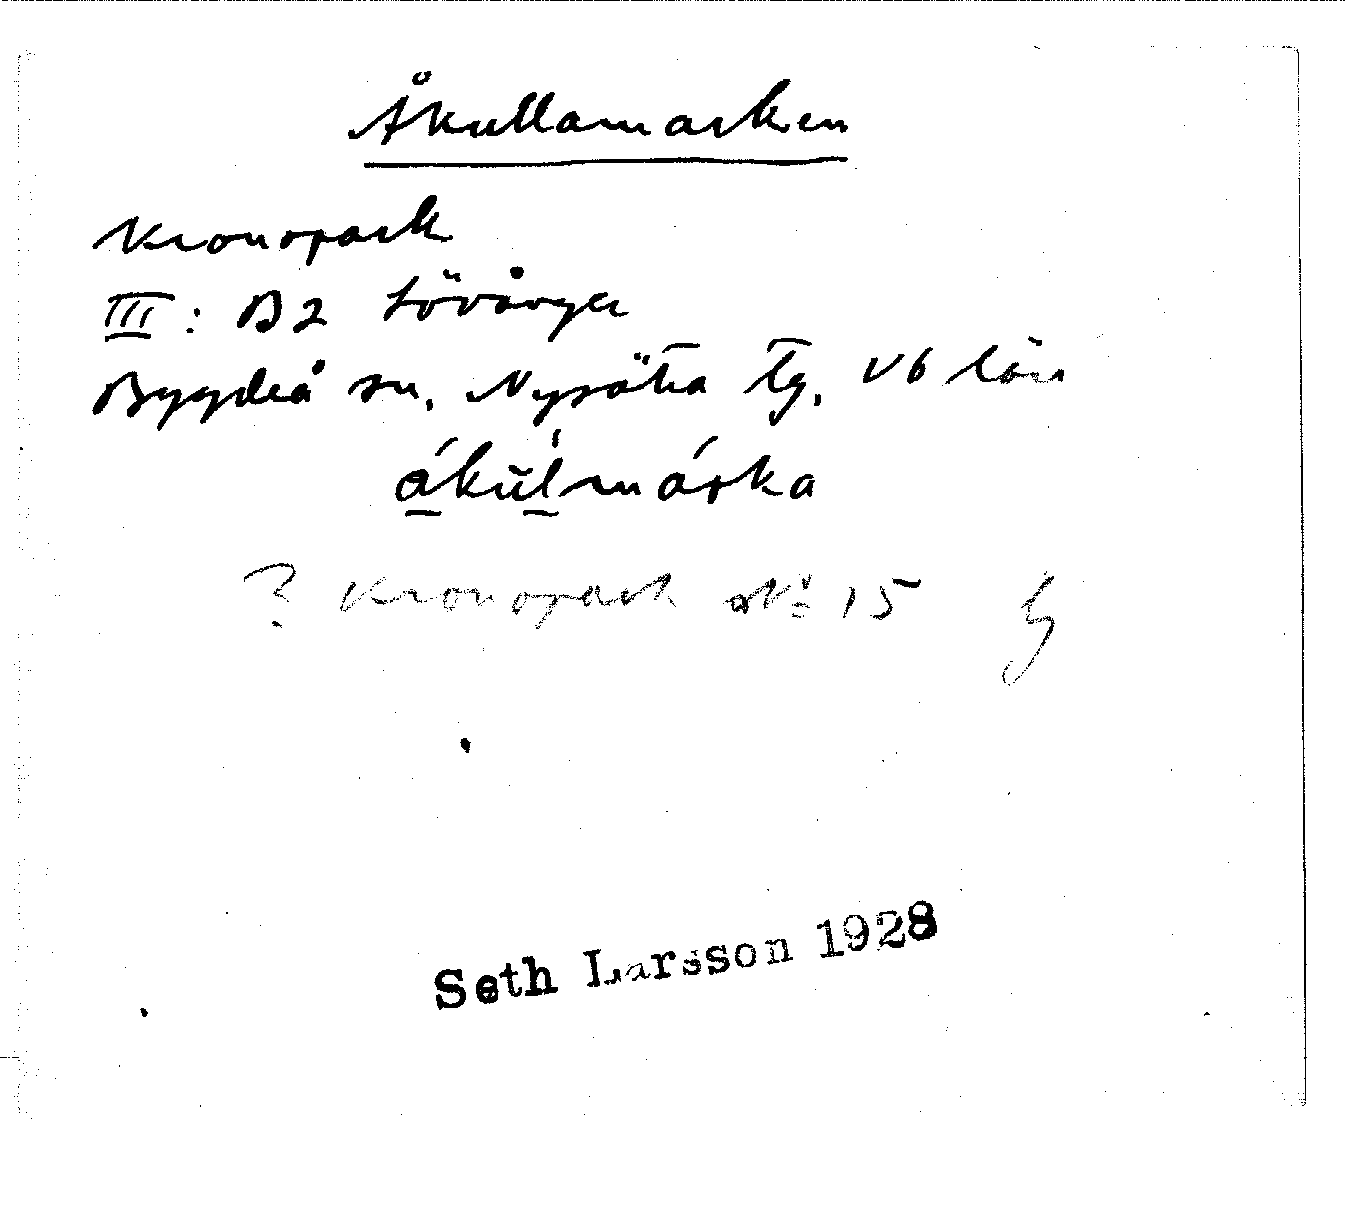 Åkullamarken
Kronopark
III: B2 Lövånger
Bygdeå sn, Nysätra tg, Vb län
ákúlmárka
? Kronopark No 15
Seth Larsson 1928